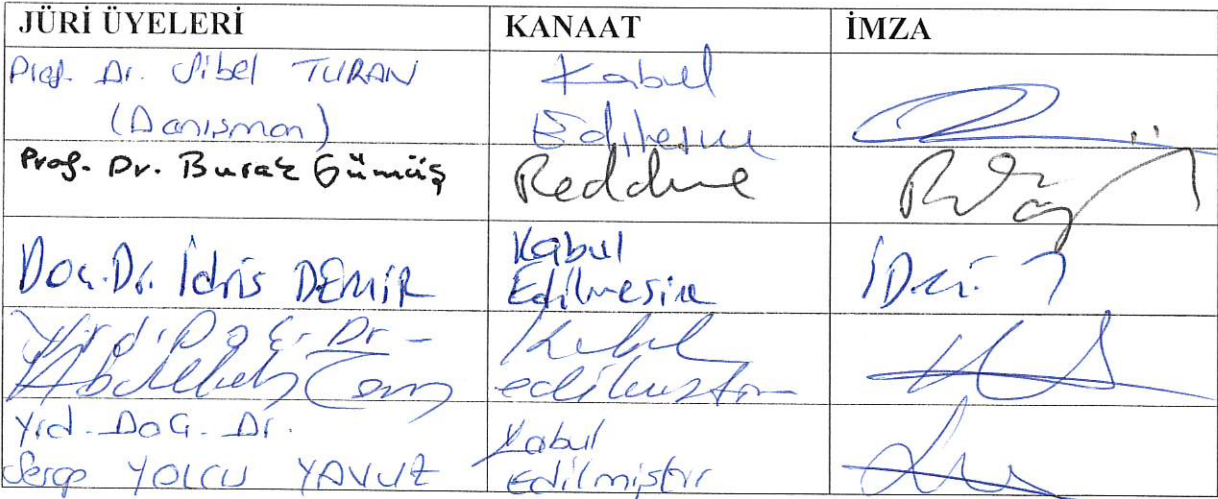 JÜRİ ÜYELERİ KANAAT İMZA
Prof. Dr. Sibel TURAN Kabul
(Danışman) Edilmesine
Prof. Dr. Burak Gümüş Reddine
Doç. Dr. İdris DEMİR Kabul
Edilmesine
Yrd. Doç. Dr. Kabul
edilmiştir
Yrd. Doç. Dr. Kabul
YOLCU YAVUZ Edilmiştir